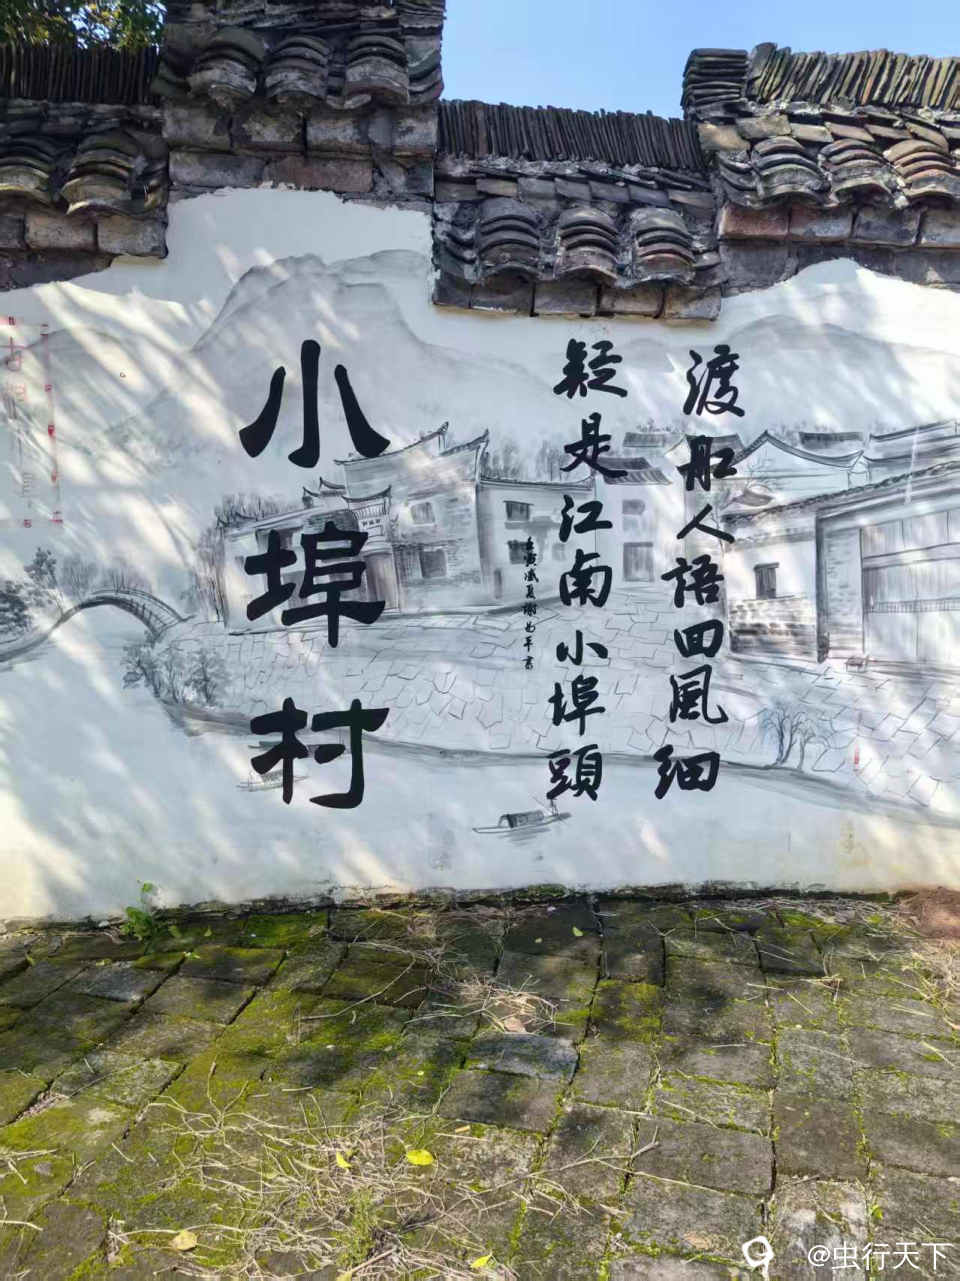 渡船人語回風細
疑是江南小埠頭
壬寅盛夏
小埠村
@虫行天下